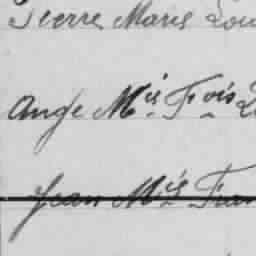 Pierre Marie Lou
Ange Mie Fois L
Jean Mie Fran